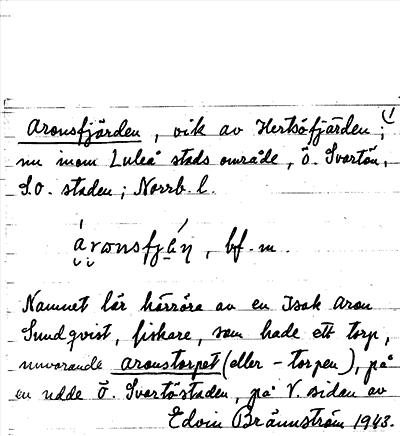 Aronsfjärden, vik av Hertsöfjärden;
nu inom Luleå stads område, ö. Svartön,
S.O. staden; Norrb. l.
, bf. m.
Namnet lär härröra av en Isak Aron
Sundqvist, fiskare, som hade ett torp,
nuvarande Aronstorpet (eller - torpen), på
en udde Ö. Svartöstaden, på V. sidan av
Edvin Brännström 1943.